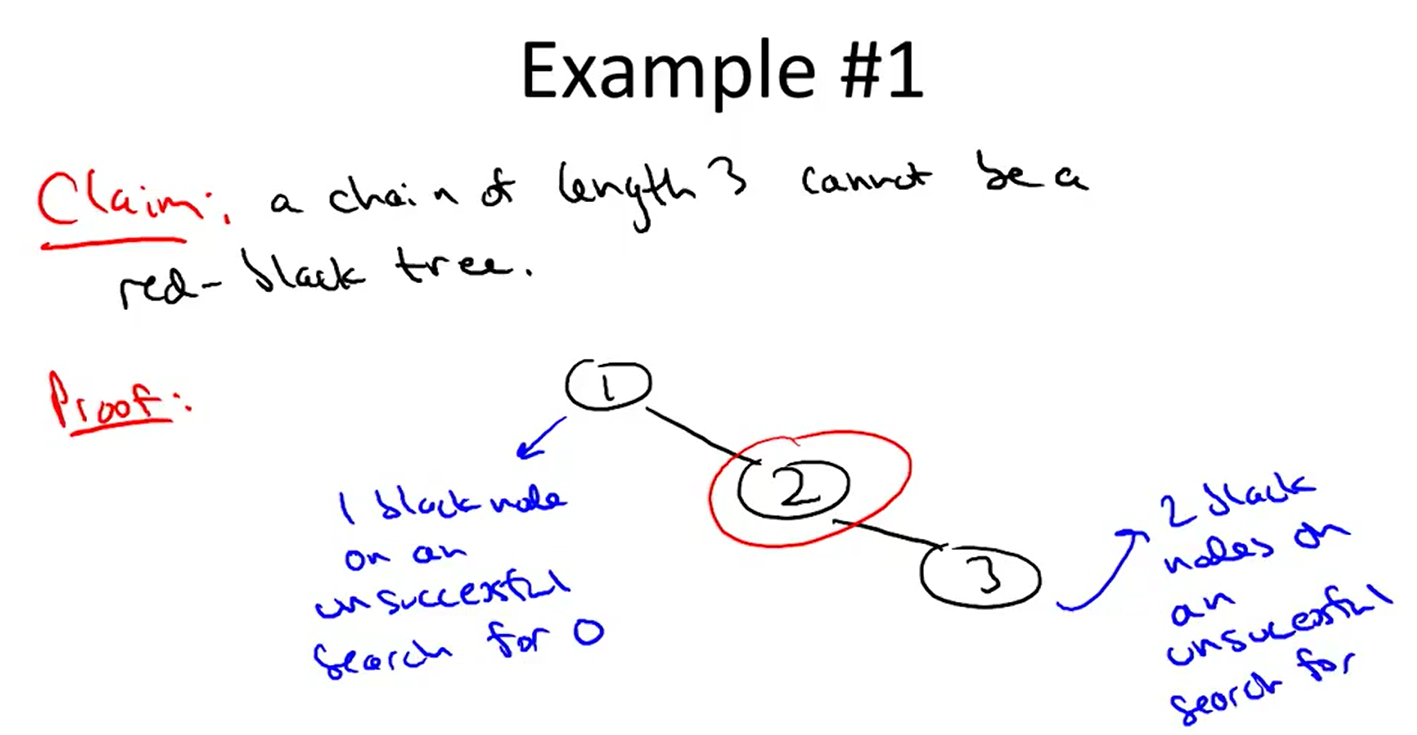 Example #1
Claim: a chain of length 3 cannot be a
red-black tree.
Proof:
1
2
3
1 black node
on an
unsuccessful
search for 0
2 black
nodes on
an
unsucessful
search for